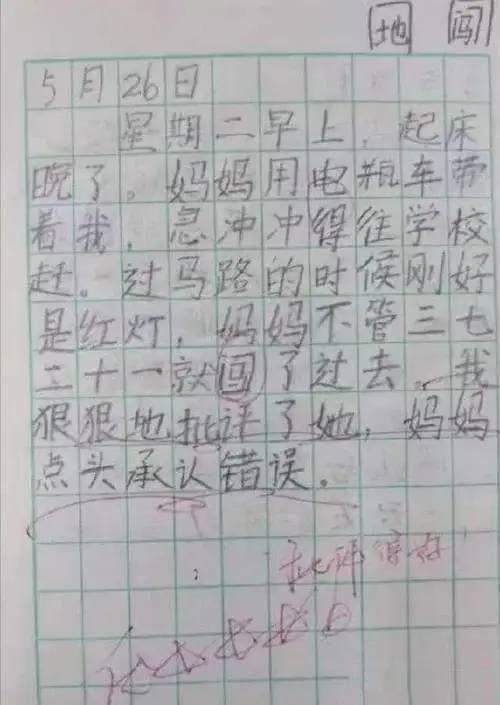 地 闯
5月26日
星期二早上，起床
晚了。妈妈用电瓶车带
着我，急冲冲得往学校
赶。过马路的时候刚好
是红灯，妈妈不管三七
二十一就闯了过去。我
狠狠地批评了她，妈妈
点头承认错误。
批评得好